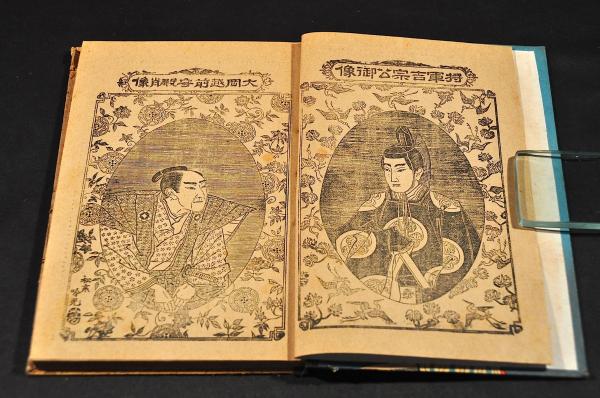 將軍吉宗公御像
大岡越前守殿肖像
吟光